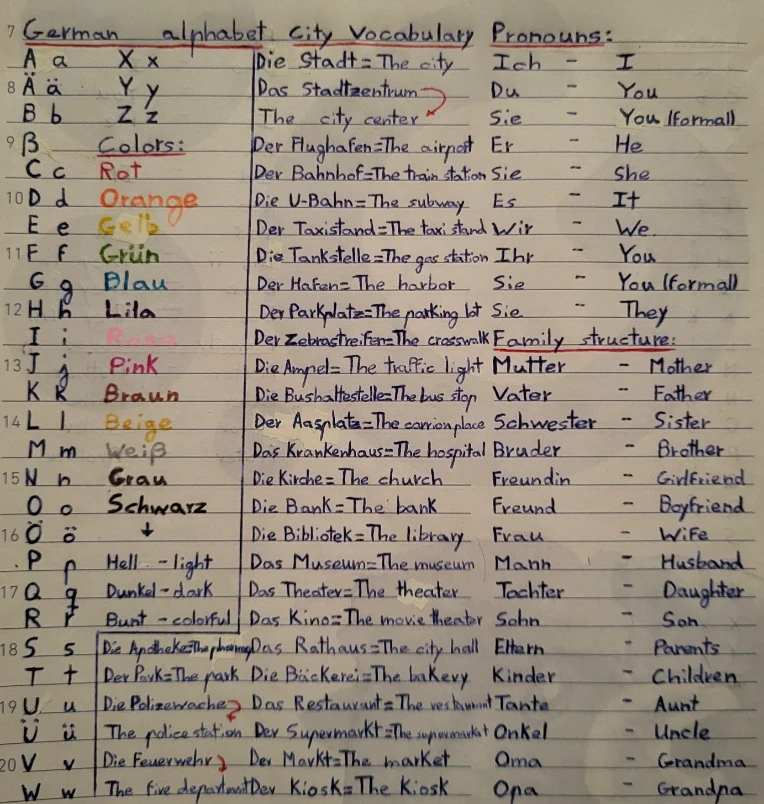 7 German alphabet City Vocabulary Pronouns:
A a X x Die Stadt = The city Ich - I
8 Ä ä Y y Das Stadtzentrum Du - You
B b Z z The city center Sie - You (formal)
9 ß Colors: Der Flughafen=The airport Er - He
C c Rot Der Bahnhof=The train station Sie - She
10 D d Orange Die U-Bahn=The subway Es - It
E e Gelb Der Taxistand=The taxi stand Wir - We
11 F f Grün Die Tankstelle=The gas station Ihr - You
G g Blau Der Hafen=The harbor Sie - You (formal)
12 H h Lila Der Parkplatz=The parking lot Sie - They
I i Rosa Der Zebrastreifen=The crosswalk Family structure:
13 J j Pink Die Ampel= The traffic light Mutter - Mother
K k Braun Die Bushaltestelle=The bus stop Vater - Father
14 L l Beige Der Aasplatz=The carrion place Schwester - Sister
M m Weiß Das Krankenhaus=The hospital Bruder - Brother
15 N n Grau Die Kirche=The church Freundin - Girlfriend
O o Schwarz Die Bank=The bank Freund - Boyfriend
16 Ö ö ↓ Die Bibliotek=The library Frau - Wife
P p Hell - light Das Museum=The museum Mann - Husband
17 Q q Dunkel-dark Das Theater=The theater Tochter - Daughter
R r Bunt - colorful Das Kino=The movie theater Sohn - Son
18 S s Die Apotheke=The pharmacy Das Rathaus=The city hall Eltern - Parents
T t Der Park=The park Die Bäckerei=The bakery Kinder - Children
19 U u Die Polizewache Das Restaurant=The restaurant Tante - Aunt
Ü ü The police station Der Supermarkt=The supermarket Onkel - Uncle
20 V v Die Feuerwehr Der Markt=The market Oma - Grandma
W w The fire department Der Kiosk=The Kiosk Opa - Grandpa